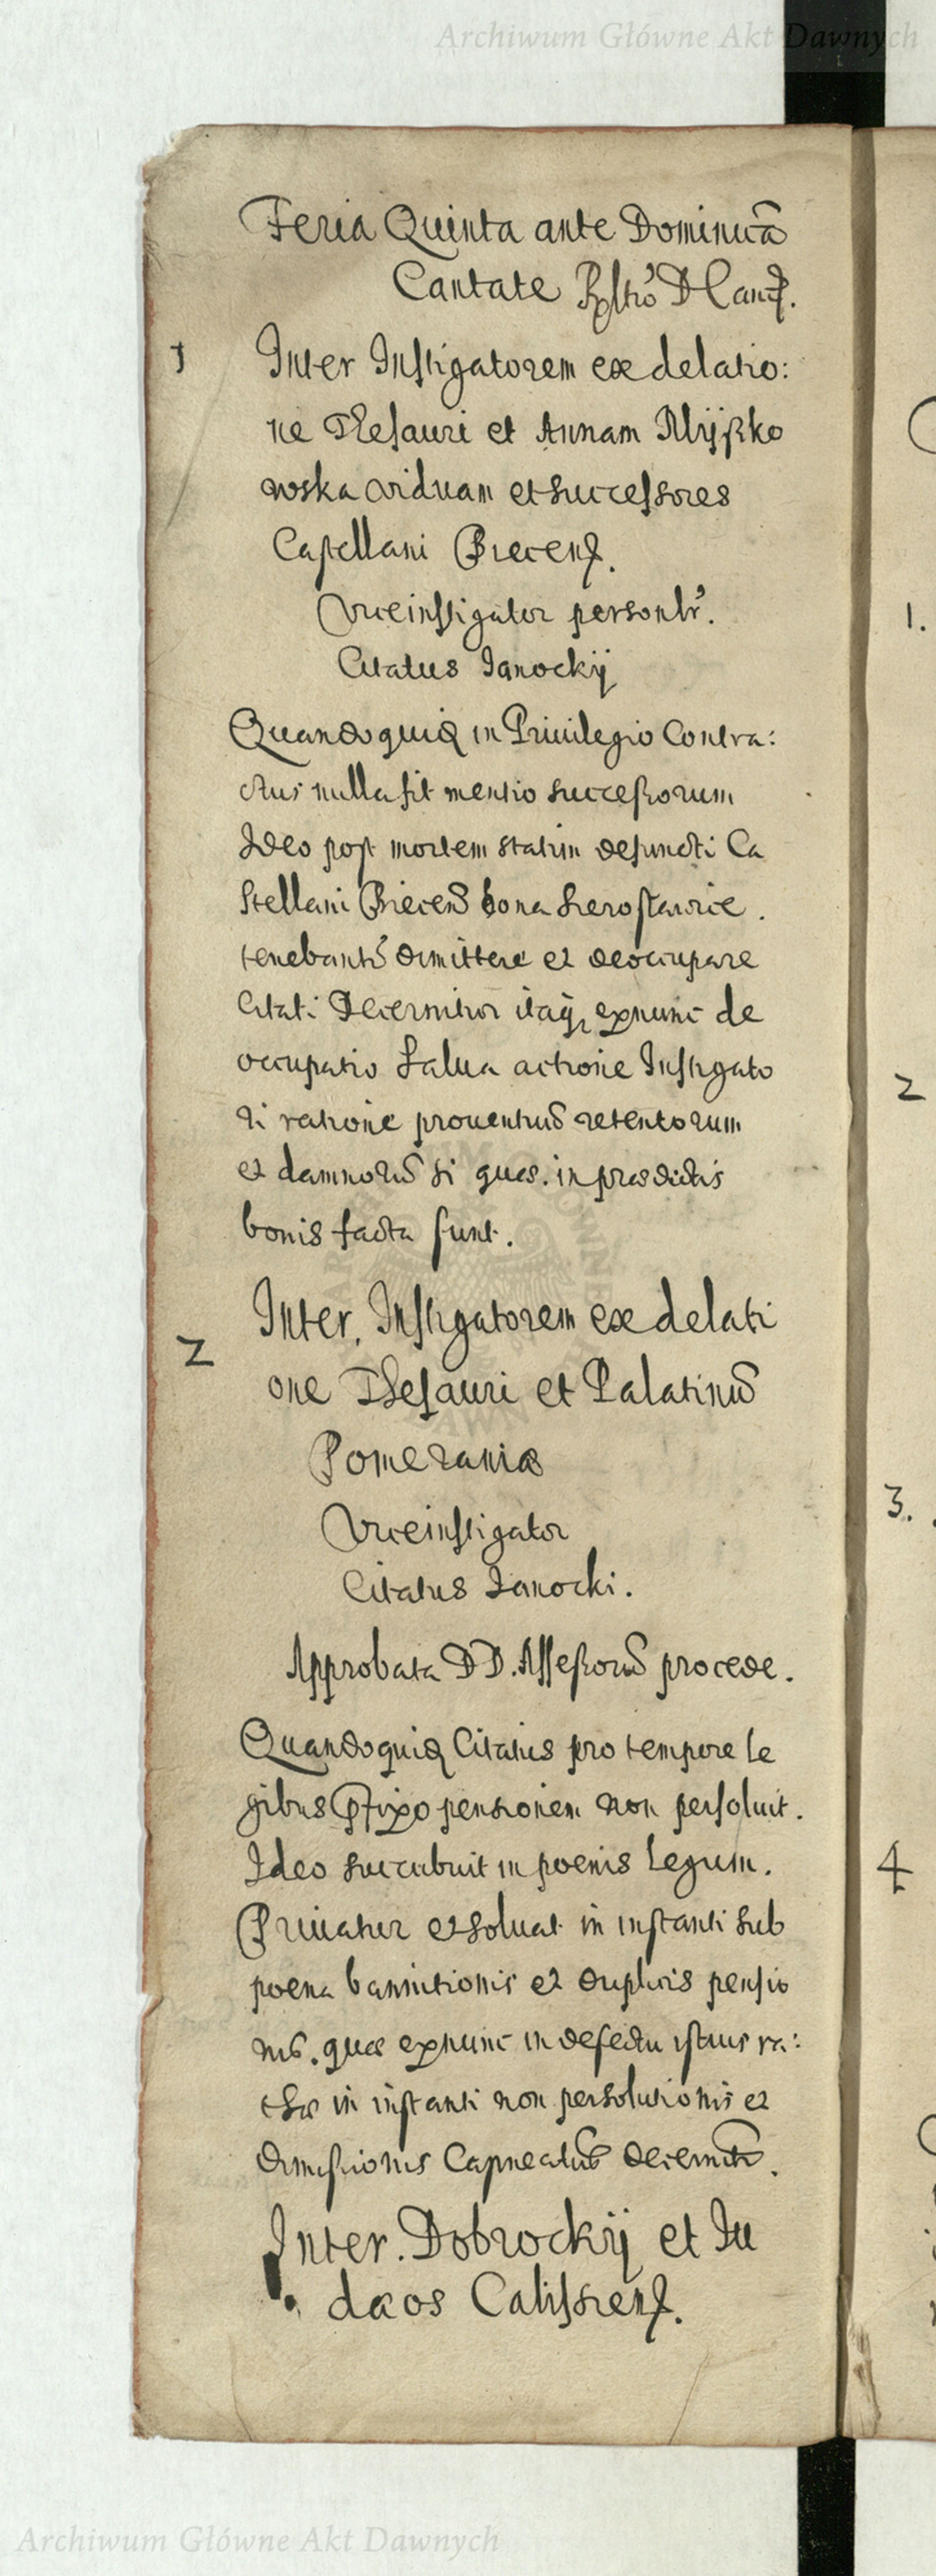 Archiwum Główne Akt Dawnych
Feria Quinta ante Dominicā
Cantate
1 Inter Instigatorem ex delatio:
ne Thesauri et Annam Mÿszko
wska viduam et successores
Castellani Biecens.
Viceinstigator personlr.
Citatus Janockÿ
Quandoquid in Priuilegio Contra:
ctus nulla sit mentio successorum
Ideo post mortem statim defuncti Ca
stellani Biecens bona
tenebantr dimittere et deoccupare
Citati Decernitur itaq exnunc de
occupatio Salua actione Instigato
ri ratione prouentuū retentorum
et damnorū si quae. in praedictis
bonis facta sunt.
2 Inter. Instigatorem ex delati
one Thesauri et Palatinū
Pomeraniae
Viceinstigator
Citatus Janocki.
Approbata D D. Assessorū procede.
Quandoquid Citatus pro tempore le
gibus pfixo pensionem non persoluit.
Ideo succubuit in poenis Legum.
Priuatur et soluat in instanti sub
poena bannitionis et duplicis pensio
nis. quae exnunc in defectu istius ra:
thae in instanti non persolutionis et
dimissionis Capneatus decernitr.
Inter. Dobrockÿ et Ju
daeos Calissiens.
1.
2
3.
4
Archiwum Główne Akt Dawnych